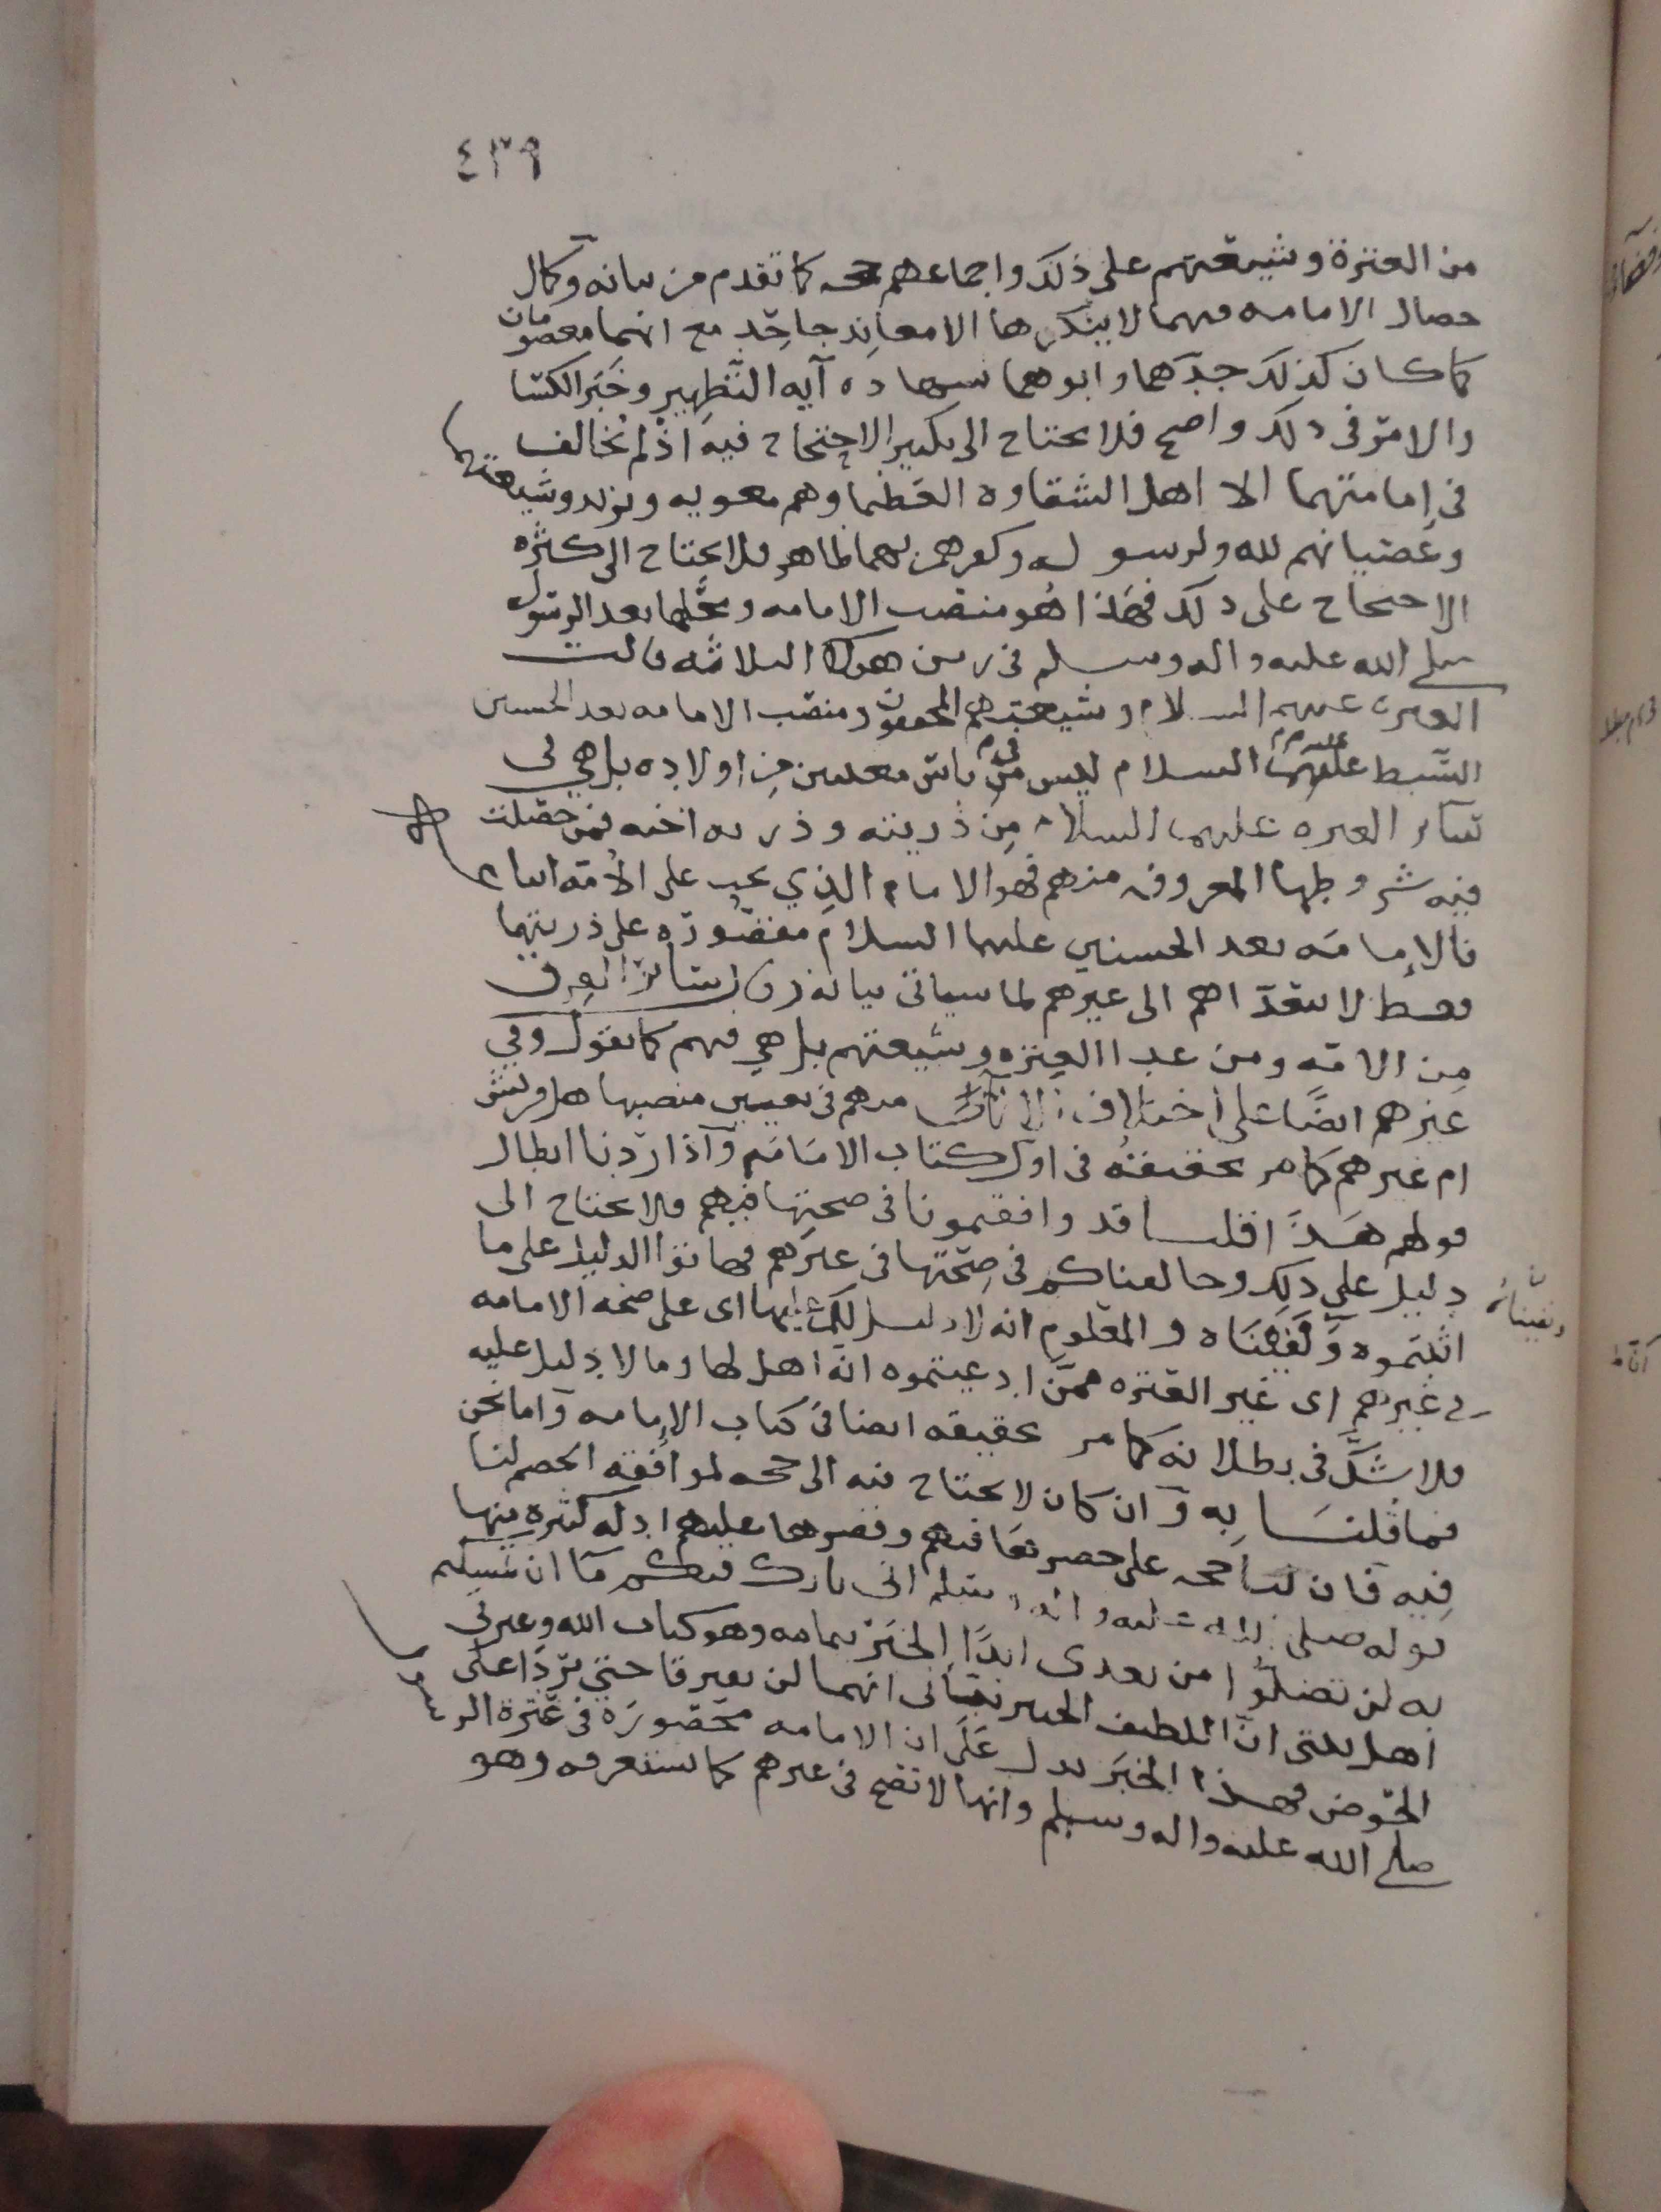 ٤٣٩
من العترة وشيعتهم على ذلك واجماعهم حجه كما تقدم من بيانه وكمال
خصال الامامه فيهما لا ينكرها الا معاند جاحد مع انهما معصومان
كما كان كذلك جدهما وابوهما بشهاده آيه التطهير وخبر الكسا
والامر في ذلك واضح فلا يحتاج الى تكثير الاحتجاج فيه اذ لم يخالف
في امامتهما الا اهل الشقاوه العظما وهم معويه ويزيد وشيعتهما
وعصيانهم لله ولرسوله وكفرهم بهما ظاهر فلا يحتاج الى كثره
الاحتجاج على ذلك فهذا هو منصب الامامه ومحلها بعد الرسول
صلى الله عليه واله وسلم في زمن هولا الثلاثه قالت
العتره عليهم السلام وشيعتهم المحقون ومنصب الامامه بعد الحسين
السبط عليهما السلام ليس في ناس معينين من اولاده بل هي في
سائر العتره عليهم السلام من ذريته وذريه اخيه فمن حصلت
فيه شروطها المعروفه منهم فهو الامام الذي يجب على الأمه اتباعه
فالإمامه بعد الحسنين عليهما السلام مقصوره على ذريتهما
فقط لا تتعداهم الى غيرهم لما سياتي بيانه سائر الفرق
من الامه ومن عدا العتره وشيعتهم بل هي فيهم كما نقول وفي
غيرهم ايضا على اختلاف منهم في تعيين منصبها هل قريش
ام غيرهم كما مر تحقيقه في اول كتاب الامامه وآذا اردنا ابطال
قولهم هذا قلنا قد وافقتمونا في صحتها فيهم فلا نحتاج الى
دليل على ذلك وخالفناكم في صحتها في غيرهم فهاتوا الدليل على ما
اثبتموه ونفيناه والمعلوم انه لا دليل لكم عليها اى على صحه الامامه
ونفيناه
في غيرهم اى غير العتره ممن ادعيتموه انه اهل لها وما لا دليل عليه
فلا شك في بطلانه كما مر تحقيقه ايضا في كتاب الإمامه وآما نحن
فما قلنا به وآن كان لا يحتاج فيه الى حجه لموافقه الخصم لنا
فيه فان لنا حجه على حصرها فيهم وقصرها عليهم ادله كثيره منها
قوله صلى الله عليه واله وسلم انى تارك فيكم مآ ان تمسكتم
به لن تضلوا من بعدى ابدًا الخبر بتمامه وهو كتاب الله وعترتي
اهل بيتى ان اللطيف الخبير نبأنى انهما لن يفترقا حتى يردا على
الحوض فهذا الخبر يدل على ان الامامه محصوره في عترة الرسول
صلى الله عليه واله وسلم وانها لا تصح في غيرهم كما ستعرفه وهو